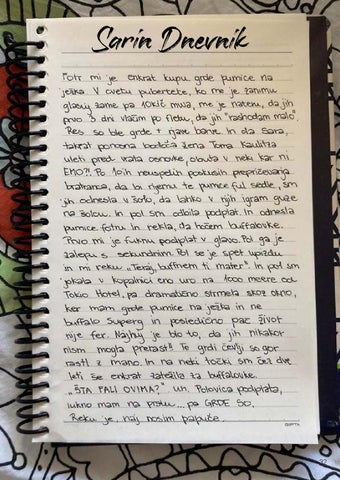 Sarin Dnevnik
Fotr mi je enkrat kupu grde pumice na
ježka. V cvetu pubertete, ko me je zanimu
glavni žame pa 10kič muva, me je narenu, da jih
prvo 3 dni vlačm po fletu, da jih "rashodam malo".
Res so ble grde + rjave barve. In da Sara,
takrat ponosna bodoča žena Toma Kaulitza
uleti pred vrata osnovke, obuta v neki kar ni
EMO?! Po 10ih neuspelih poskusih prepričevanja
bratranca, da bi njemu te pumice ful sedle, sm
jih odnesla v šolo, da lahko v njih igram guze
na žolcu. In pol sm odbila podplat. In odnesla
pumice fotru in rekla, da hočem buffalovke.
Prvo mi je fuknu podplat v glavo. Pol ga je
zalepu s sekundnim. Pol se je spet upizdu
in mi reku "Teraj, buffnem ti mater". In pol sm
jokala v kopalnici eno uro na 1000 metre od
Tokio Hotel, pa dramatično strmela skoz okno,
ker mam grde pumice na ježka in ne
buffalo Superg in posledično pač život
nije fer. Najhuj je blo to, da jih nikakor
nism mogla prerast!! Te grdi čevlji so gor
rastl z mano. In na neki točki sm čez dve
leti še enkrat zatežila za buffalovke.
"ŠTA FALI OVIMA?" uh. Polovica podplata,
lukno mam na prstu... pa GRDE SO.
Reku je, naj nosim papuče.
GIPTA